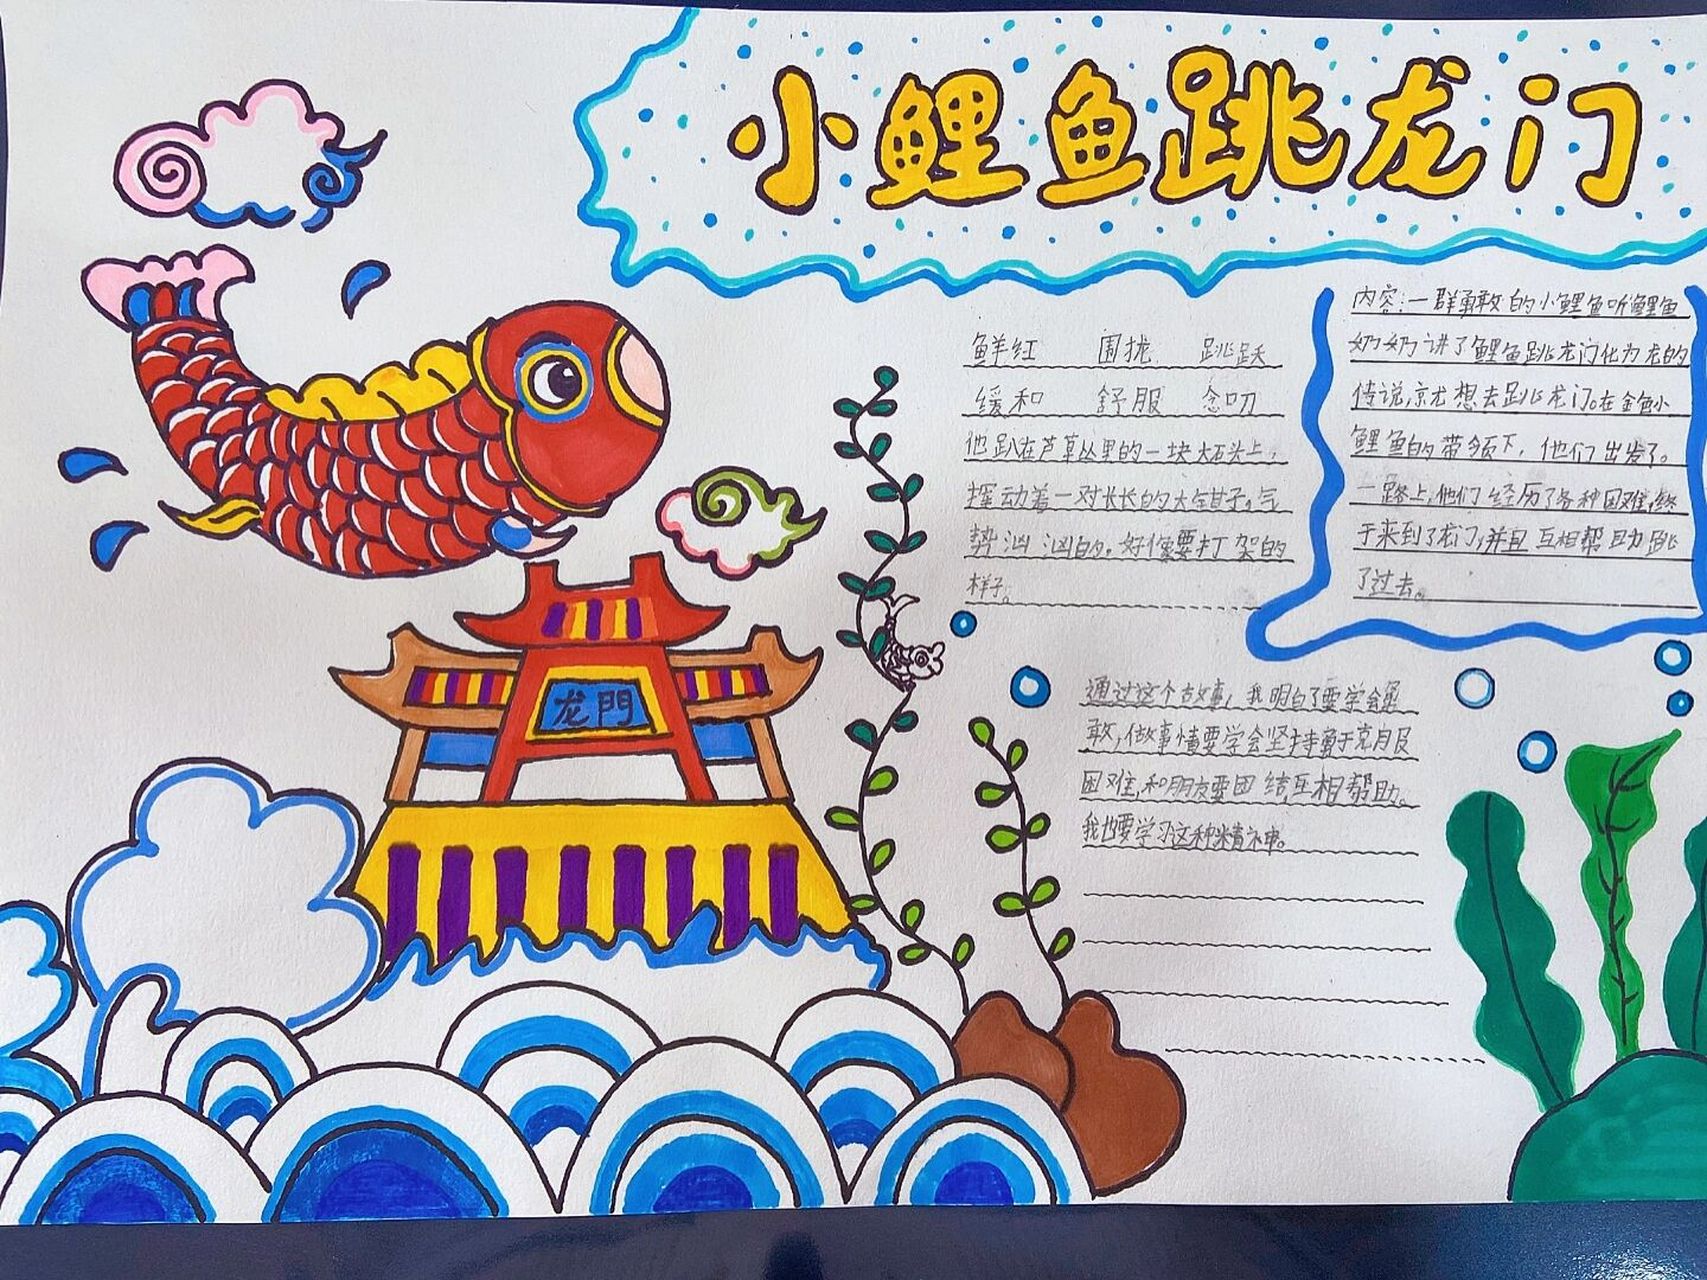 小鲤鱼跳龙门
鲜红 围拢 跳跃
缓和 舒服 念叨
他趴在芦草丛里的一块大石头上，
挥动着一对长长的大钳子。气
势汹汹的。好像要打架的
样子。
内容：一群勇敢的小鲤鱼听鲤鱼
奶奶讲了鲤鱼跳龙门化为龙的
传说，京尤想去跳龙门。在金色小
鲤鱼的带领下，他们出发了。
一路上，他们经历了各种困难，终
于来到了龙门，并且互相帮助跳
了过去。
龙門
通过这个故事，我明白了要学会勇
敢，做事情要学会坚持勇于克服
困难，和朋友要团结互相帮助。
我也要学习这种精神。